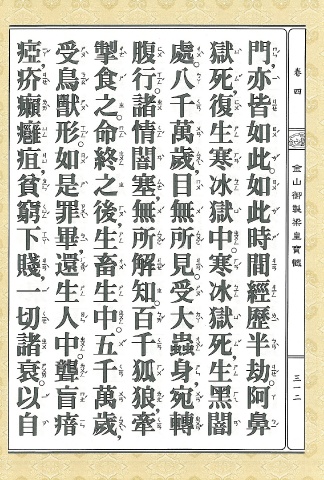 卷四
金山御製梁皇寶懺
三一二
門,亦皆如此。如此時間經歷半劫。阿鼻
獄死,復生寒冰獄中。寒冰獄死,生黑闇
處。八千萬歲,目無所見。受大蟲身,宛轉
腹行。諸情闇塞,無所解知。百千狐狼,牽
掣食之。命終之後,生畜生中。五千萬歲,
受鳥獸形。如是罪畢,還生人中。聾盲瘖
瘂,疥癩癰疽,貧窮下賤,一切諸衰,以自